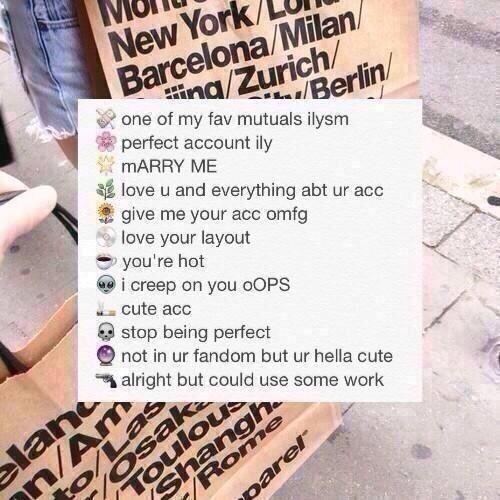 New York/
Barcelona/Milan/
/Zurich/
/Berlin/
one of my fav mutuals ilysm
perfect account ily
mARRY ME
love u and everything abt ur acc
give me your acc omfg
love your layout
you're hot
i creep on you oOPS
cute acc
stop being perfect
not in ur fandom but ur hella cute
alright but could use some work
/Osaka
Toulouse
Shangh
/Rome